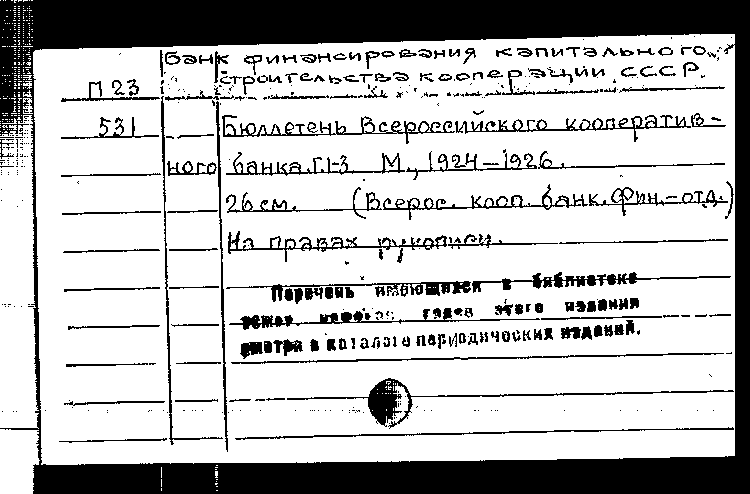 Банк финансирования капитального
строительства кооперации СССР.
П 23
531 Бюллетень Всероссийского кооператив-
ного банка. Г.1-3 М., 1924-1926.
26 см. (Всерос. кооп. банк. Фин.-отд.)
На правах рукописи.
Перечень имеющихся в библиотеке
годов этого издания
смотри в каталоге периодических изданий.